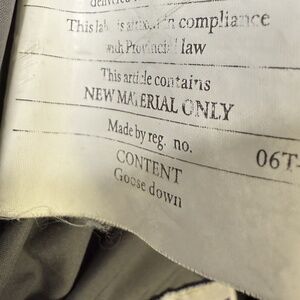 This label is affixed in compliance
with Provincial law
This article contains
NEW MATERIAL ONLY
Made by reg. no. 06T-
CONTENT
Goose down